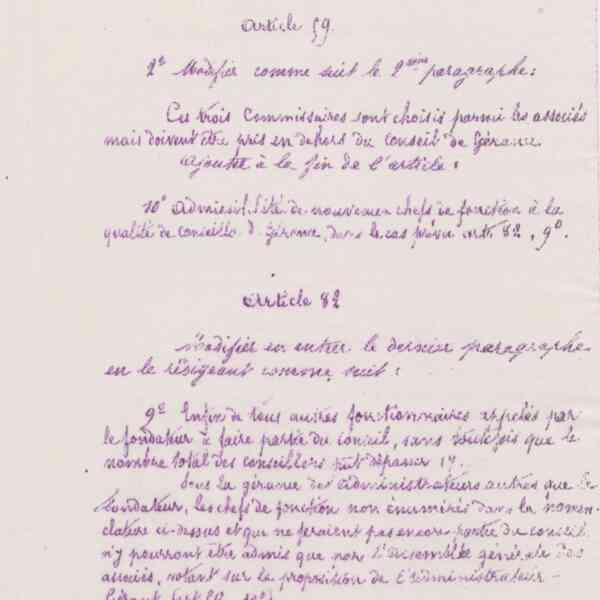 Article 59
2° Modifier comme suit le 2ème paragraphe:
Ces trois Commissaires sont choisis parmi les associés
mais doivent être pris en dehors du Conseil de Gérance.
Ajouter à la fin de l'article:
10° de nouveaux chefs de fonction à la
qualité de Conseillers de Gérance, dans le cas prévu art. 82, 9°.
Article 82
Modifier en entier le dernier paragraphe
en le rédigeant comme suit:
9° Enfin de tous autres fonctionnaires appelés par
le fondateur à faire partie du conseil, sans toutefois que le
nombre total des conseillers puisse dépasser 17.
Sous la gérance des administrateurs autres que le
fondateur, les chefs de fonction non énumérés dans la nomen-
clature ci-dessus et qui ne feraient pas encore partie du conseil
n'y pourront être admis que par l'assemblée générale des
associés, votant sur la proposition de l'administrateur-
Gérant